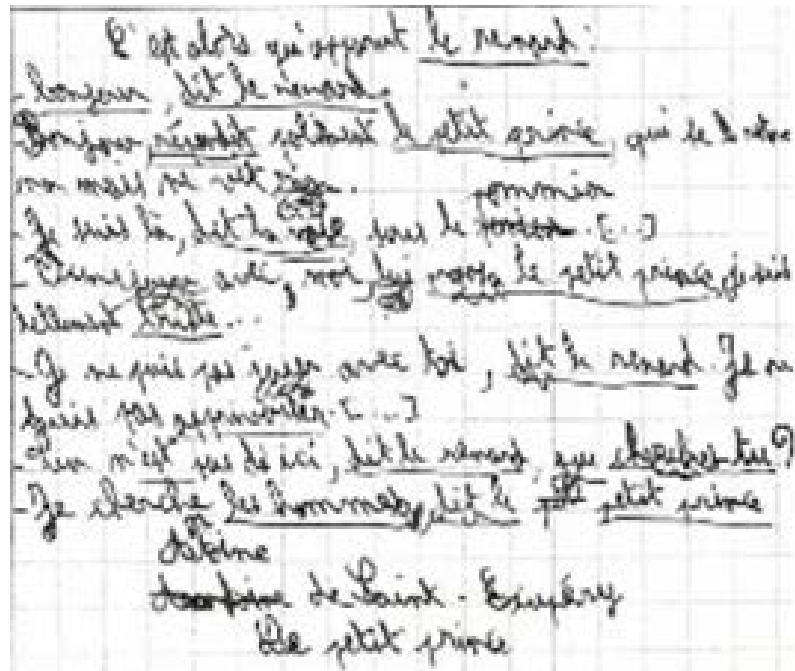 C'est alors qu'apparut le renard :
- bonjour, dit le renard.
- Bonjour répondit poliment le petit prince, qui se
mais ne vit rien.
pommier
- Je suis là, dit la voix sous le [...]
avec, moi lui le petit prince, je suis
tellement triste...
- Je ne puis pas jouer avec toi, dit le renard. Je ne
puis pas [...]
- Tu n'est pas de ici, dit le renard, que cherches tu ?
- Je cherche les hommes, dit le petit prince
de Saint-Exupéry
Le petit prince